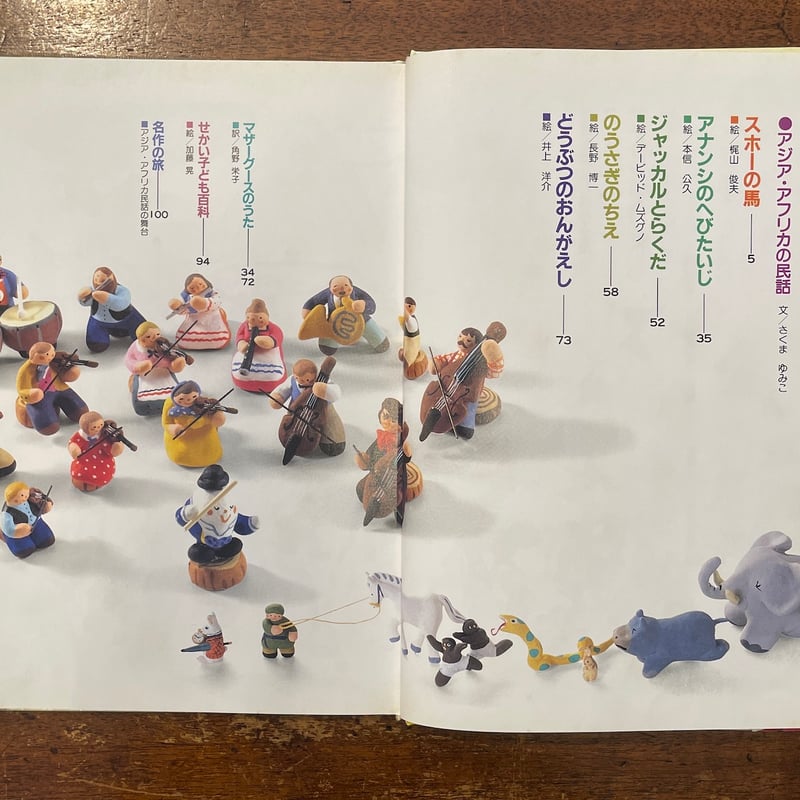 ●アジア・アフリカの民話
文／さくま ゆみこ
スホーの馬 5
■絵／梶山 俊夫
アナンシのへびたいじ 35
■絵／本信 公久
ジャッカルとらくだ 52
■絵／デービッド・ムズグノ
のうさぎのちえ 58
■絵／長野 博一
どうぶつのおんがえし 73
■絵／井上 洋介
マザーグースのうた 34
72
■訳／角野 栄子
せかい子ども百科 94
■絵／加藤 晃
名作の旅 100
■アジア・アフリカ民話の舞台